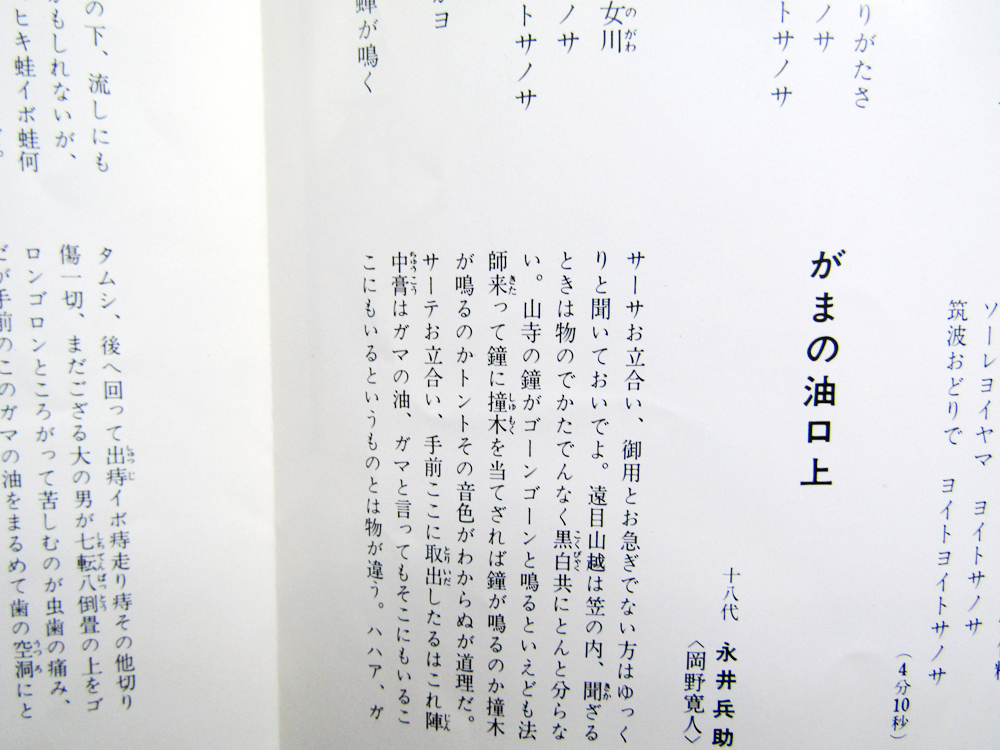 りがたさ
ノサ
トサノサ
女川
ノサ
トサノサ
ヨ
蝉が鳴く
ソーレヨイヤマ ヨイトサノサ
筑波おどりで ヨイトヨイトサノサ
(4分10秒)
がまの油口上
十八代 永井兵助
〈岡野寛人〉
サーサお立合い、御用とお急ぎでない方はゆっく
りと聞いておいでよ。遠目山越は笠の内、聞ざる
ときは物のでかたでんなく黒白共にとんと分らな
い。山寺の鐘がゴーンゴーンと鳴るといえども法
師来って鐘に撞木を当てざれば鐘が鳴るのか撞木
が鳴るのかトントその音色がわからぬが道理だ。
サーテお立合い、手前ここに取出したるはこれ陣
中膏はガマの油、ガマと言ってもそこにもいるこ
こにもいるというものとは物が違う。ハハア、ガ
の下、流しにも
かもしれないが、
ヒキ蛙イボ蛙何
タムシ、後へ回って出痔イボ痔走り痔その他切り
傷一切、まだござる大の男が七転八倒畳の上をゴ
ロンゴロンところがって苦しむのが虫歯の痛み、
だが手前のこのガマの油をまるめて歯の空洞にと